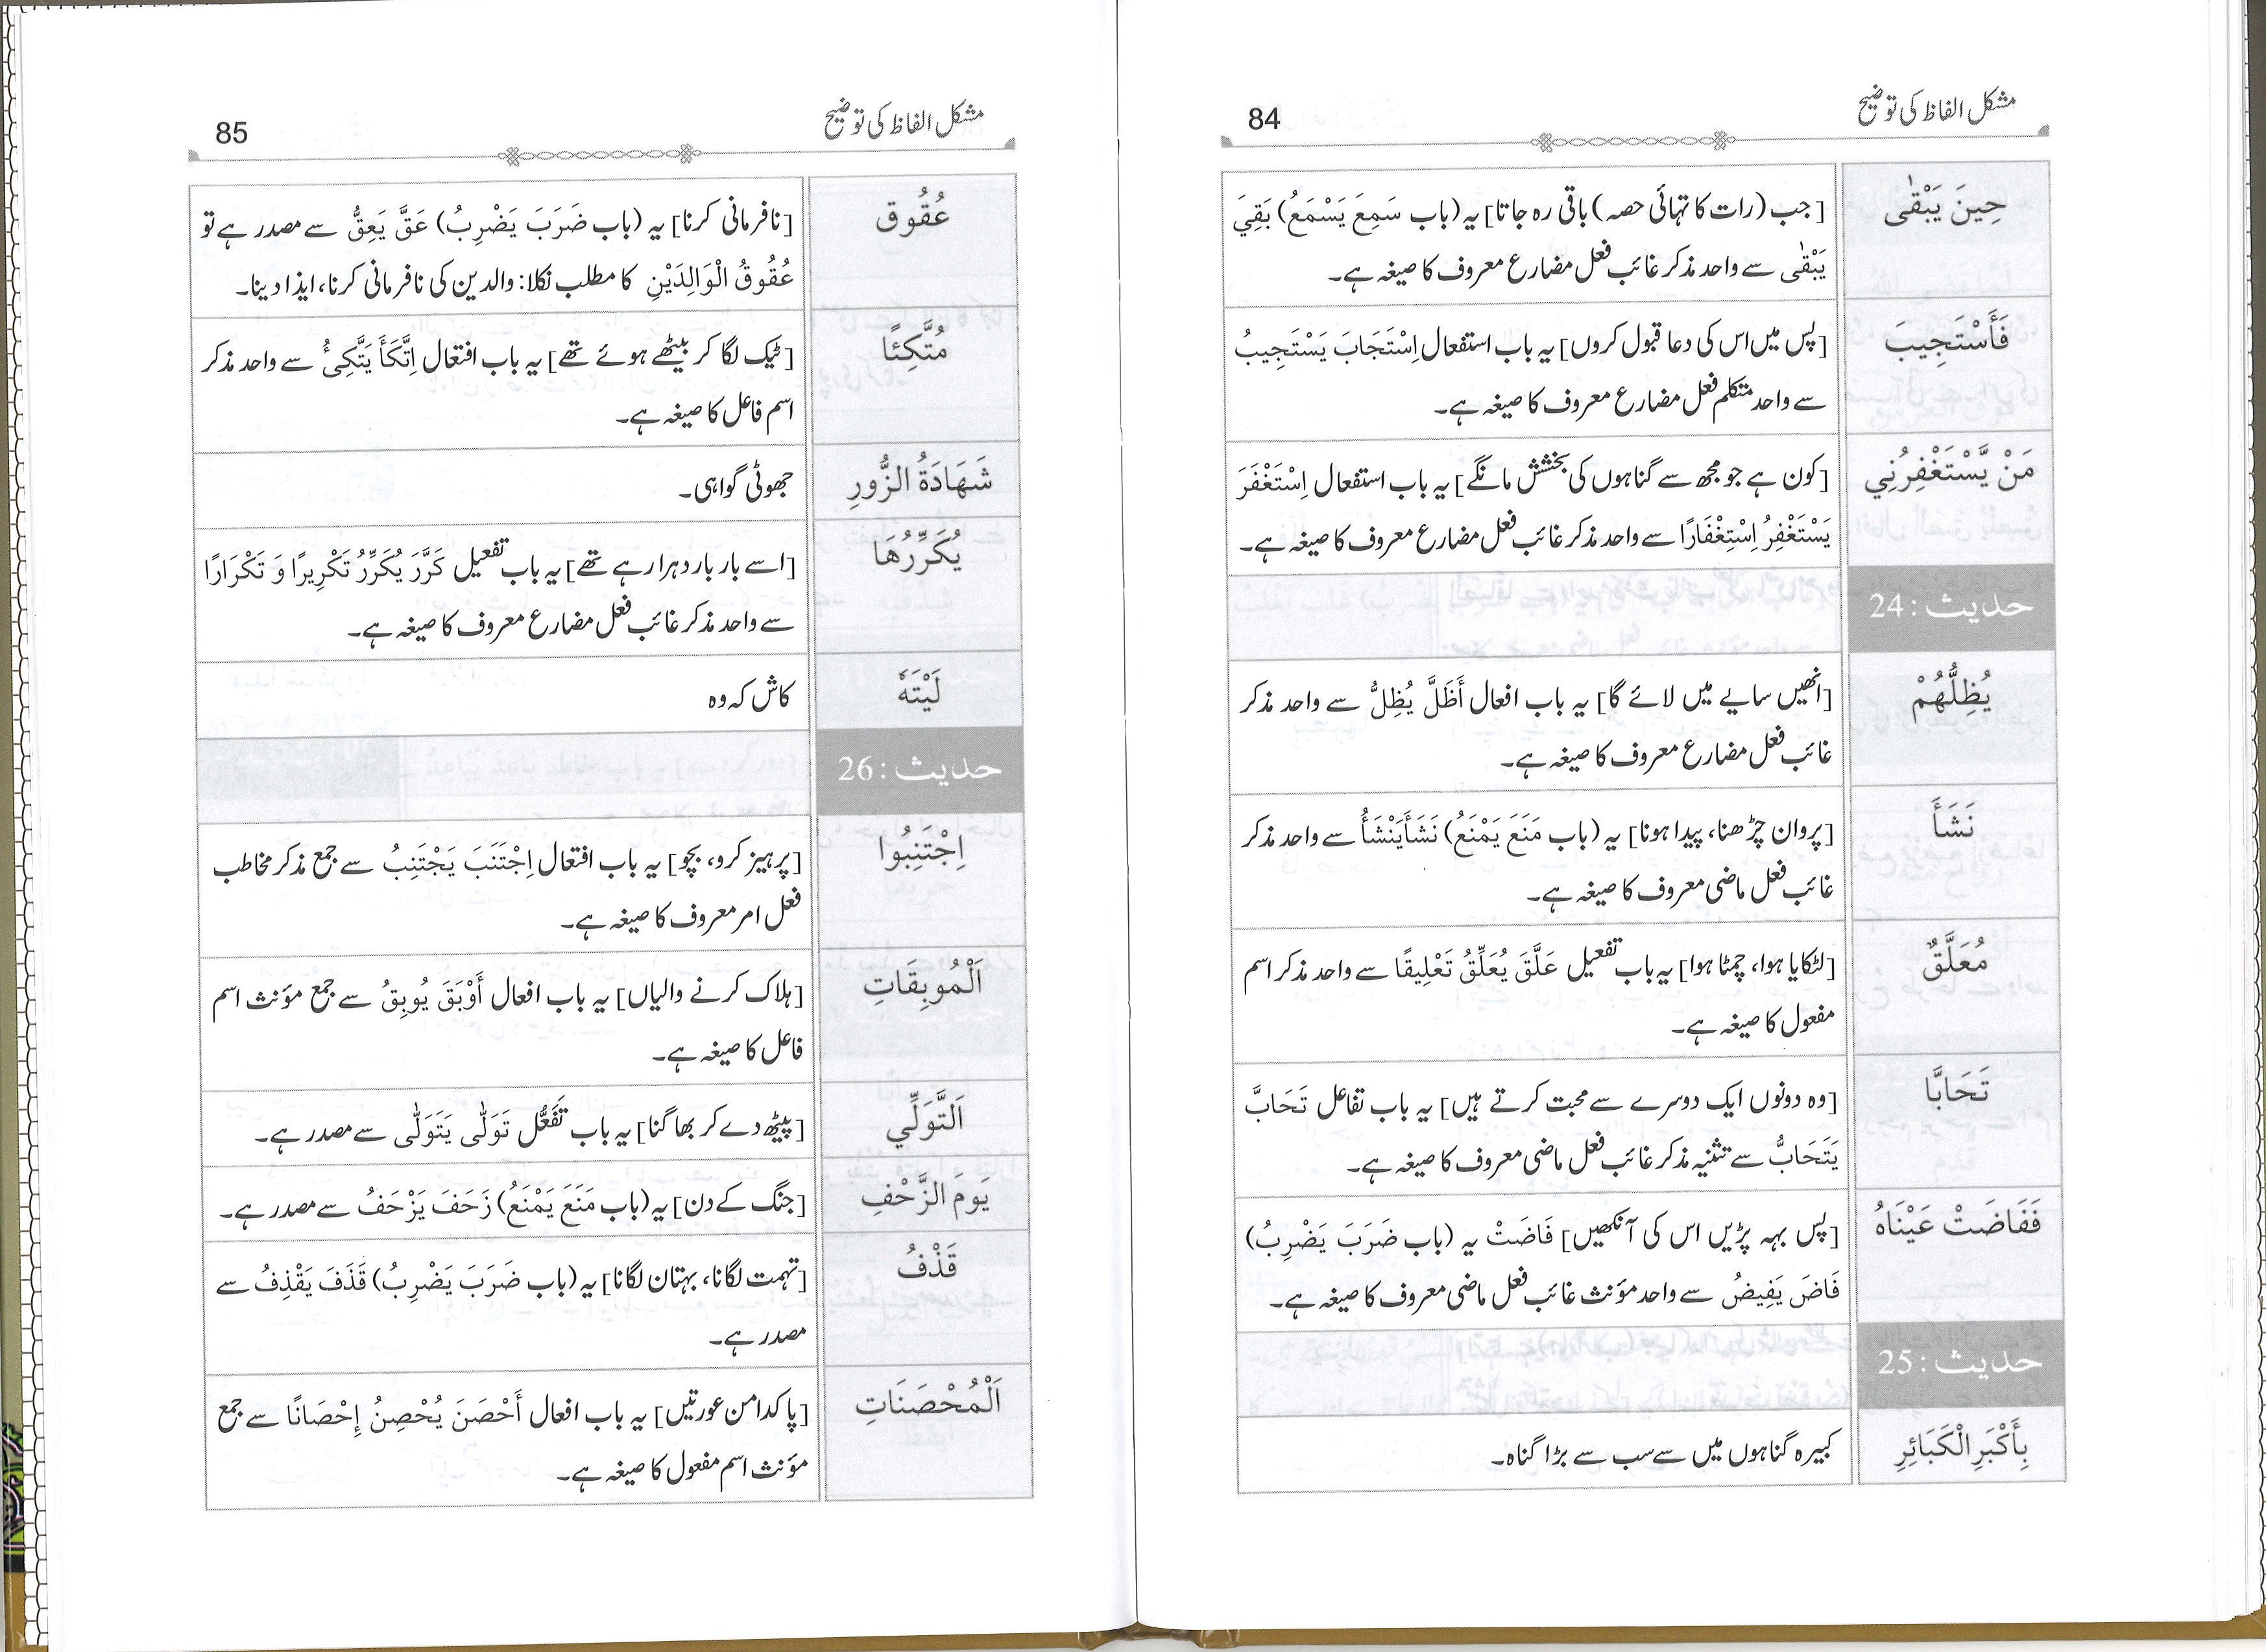 مشکل الفاظ کی توضیح
84
حِينَ يَبْقٰى
[جب (رات کا تہائی حصہ) باقی رہ جاتا] یہ (باب سَمِعَ يَسْمَعُ) بَقِيَ
يَبْقٰى سے واحد مذکر غائب فعل مضارع معروف کا صیغہ ہے۔
فَأَسْتَجِيبَ
[پس میں اس کی دعا قبول کروں] یہ باب استفعال اِسْتَجَابَ يَسْتَجِيبُ
سے واحد متکلم فعل مضارع معروف کا صیغہ ہے۔
مَنْ يَّسْتَغْفِرُنِي
[کون ہے جو مجھ سے گناہوں کی بخشش مانگے] یہ باب استفعال اِسْتَغْفَرَ
يَسْتَغْفِرُ اِسْتِغْفَارًا سے واحد مذکر غائب فعل مضارع معروف کا صیغہ ہے۔
حدیث: 24
يُظِلُّهُمْ
[انھیں سایے میں لائے گا] یہ باب افعال أَظَلَّ يُظِلُّ سے واحد مذکر
غائب فعل مضارع معروف کا صیغہ ہے۔
نَشَأَ
[پروان چڑھنا، پیدا ہونا] یہ (باب مَنَعَ يَمْنَعُ) نَشَأَ يَنْشَأُ سے واحد مذکر
غائب فعل ماضی معروف کا صیغہ ہے۔
مُعَلَّقٌ
[لٹکایا ہوا، چمٹا ہوا] یہ باب تفعیل عَلَّقَ يُعَلِّقُ تَعْلِيقًا سے واحد مذکر اسم
مفعول کا صیغہ ہے۔
تَحَابَّا
[وہ دونوں ایک دوسرے سے محبت کرتے ہیں] یہ باب تفاعل تَحَابَّ
يَتَحَابُّ سے تثنیہ مذکر غائب فعل ماضی معروف کا صیغہ ہے۔
فَفَاضَتْ عَيْنَاهُ
[پس بہہ پڑیں اس کی آنکھیں] فَاضَتْ یہ (باب ضَرَبَ يَضْرِبُ)
فَاضَ يَفِيضُ سے واحد مؤنث غائب فعل ماضی معروف کا صیغہ ہے۔
حدیث: 25
بِأَكْبَرِ الْكَبَائِرِ
کبیرہ گناہوں میں سے سب سے بڑا گناہ۔
مشکل الفاظ کی توضیح
85
عُقُوق
[نافرمانی کرنا] یہ (باب ضَرَبَ يَضْرِبُ) عَقَّ يَعِقُّ سے مصدر ہے تو
عُقُوقُ الْوَالِدَيْنِ کا مطلب نکلا: والدین کی نافرمانی کرنا، ایذا دینا۔
مُتَّكِئًا
[ٹیک لگا کر بیٹھے ہوئے تھے] یہ باب افتعال اِتَّكَأَ يَتَّكِىُٔ سے واحد مذکر
اسم فاعل کا صیغہ ہے۔
شَهَادَةُ الزُّورِ
جھوٹی گواہی۔
يُكَرِّرُهَا
[اسے بار بار دہرا رہے تھے] یہ باب تفعیل كَرَّرَ يُكَرِّرُ تَكْرِيرًا وَ تَكْرَارًا
سے واحد مذکر غائب فعل مضارع معروف کا صیغہ ہے۔
لَيْتَهٗ
کاش کہ وہ
حدیث: 26
اِجْتَنِبُوا
[پرہیز کرو، بچو] یہ باب افتعال اِجْتَنَبَ يَجْتَنِبُ سے جمع مذکر مخاطب
فعل امر معروف کا صیغہ ہے۔
اَلْمُوبِقَاتِ
[ہلاک کرنے والیاں] یہ باب افعال أَوْبَقَ يُوبِقُ سے جمع مؤنث اسم
فاعل کا صیغہ ہے۔
اَلتَّوَلِّي
[پیٹھ دے کر بھاگنا] یہ باب تَفَعُّل تَوَلّٰى يَتَوَلّٰى سے مصدر ہے۔
يَومَ الزَّحْفِ
[جنگ کے دن] یہ (باب مَنَعَ يَمْنَعُ) زَحَفَ يَزْحَفُ سے مصدر ہے۔
قَذْفُ
[تہمت لگانا، بہتان لگانا] یہ (باب ضَرَبَ يَضْرِبُ) قَذَفَ يَقْذِفُ سے
مصدر ہے۔
اَلْمُحْصَنَاتِ
[پاکدامن عورتیں] یہ باب افعال أَحْصَنَ يُحْصِنُ إِحْصَانًا سے جمع
مؤنث اسم مفعول کا صیغہ ہے۔